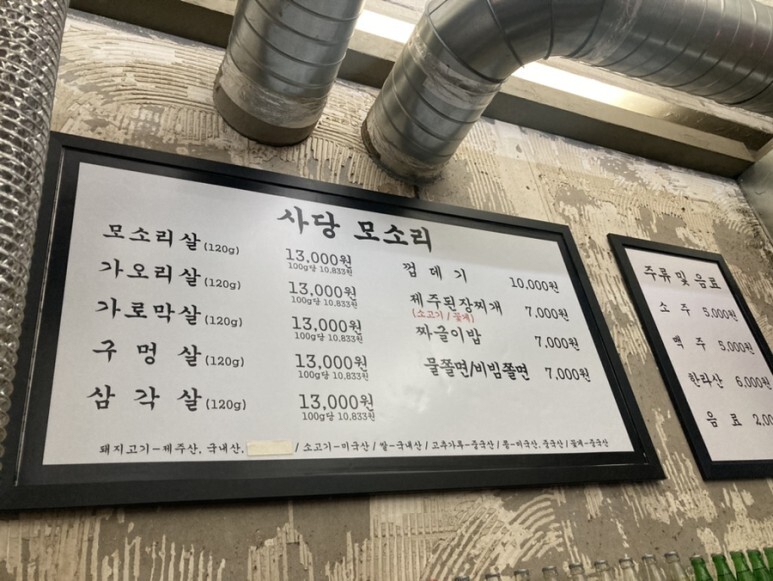 사당 모소리
모소리살 (120g) 13,000원
100g당 10,833원
가오리살 (120g) 13,000원
100g당 10,833원
가로막살 (120g) 13,000원
100g당 10,833원
구 멍 살 (120g) 13,000원
100g당 10,833원
삼 각 살 (120g) 13,000원
100g당 10,833원
껍 데 기 10,000원
제주된장찌개 7,000원
(소고기 / 꽃게)
짜글이밥 7,000원
물쫄면/비빔쫄면 7,000원
돼지고기-제주산, 국내산, / 소고기-미국산 / 쌀-국내산 / 고추가루-중국산 / 콩-미국산, 중국산 / 꽃게-중국산
주류 및 음료
소 주 5,000원
맥 주 5,000원
한라산 6,000원
음 료 2,00